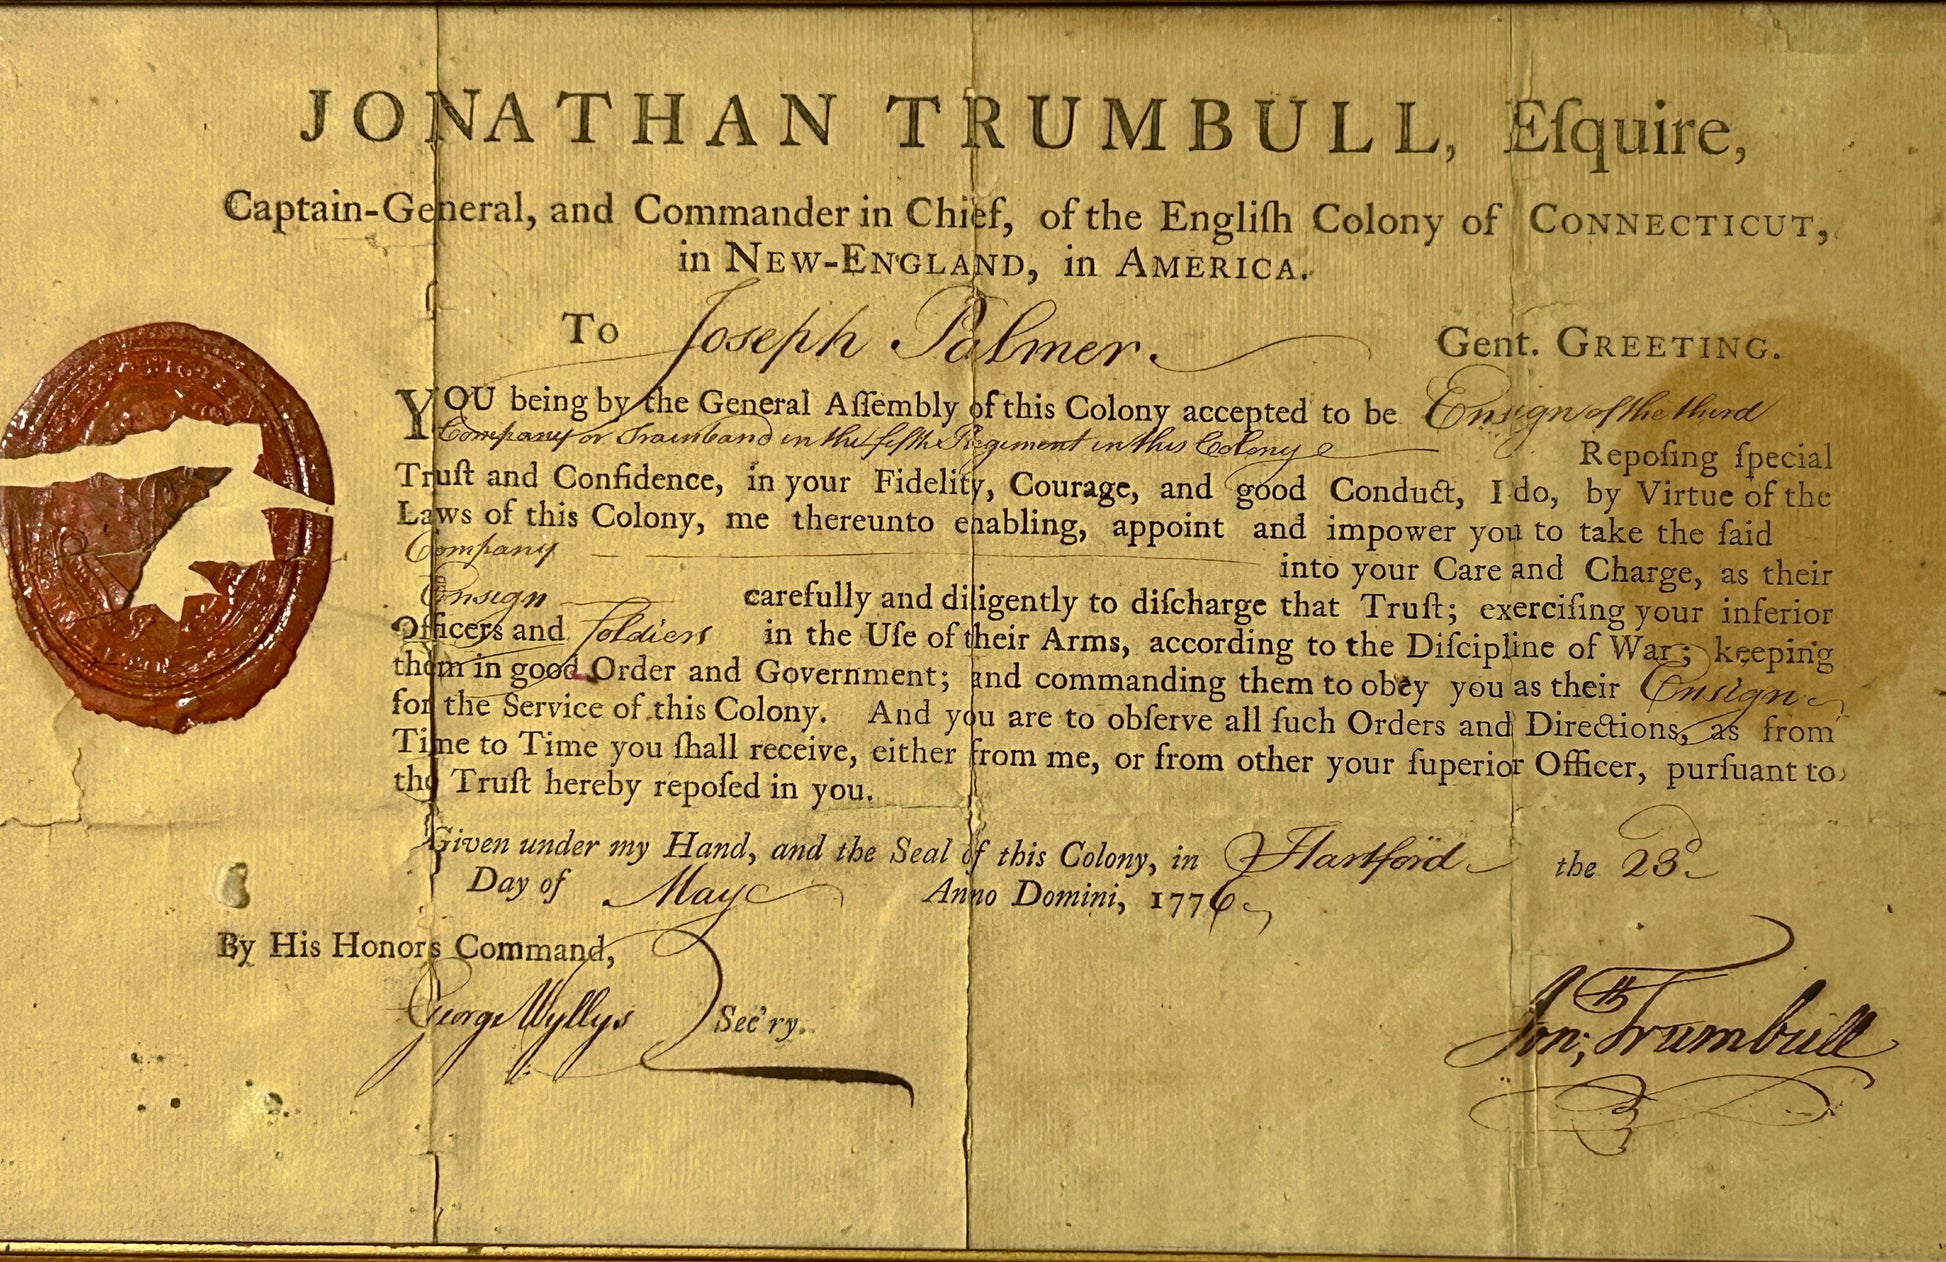 JONATHAN TRUMBULL, Eſquire,
Captain-General, and Commander in Chief, of the Engliſh Colony of CONNECTICUT,
in NEW-ENGLAND, in AMERICA.
To Joseph Palmer Gent. GREETING.
YOU being by the General Aſſembly of this Colony accepted to be Ensign of the third
Company or Trainband in the fifth Regiment in this Colony
Repoſing ſpecial
Truſt and Confidence, in your Fidelity, Courage, and good Conduct, I do, by Virtue of the
Laws of this Colony, me thereunto enabling, appoint and impower you to take the ſaid
Company
into your Care and Charge, as their
Ensign carefully and diligently to diſcharge that Truſt; exerciſing your inferior
Officers and Soldiers in the Uſe of their Arms, according to the Diſcipline of War; keeping
them in good Order and Government; and commanding them to obey you as their Ensign
for the Service of this Colony. And you are to obſerve all ſuch Orders and Directions, as from
Time to Time you ſhall receive, either from me, or from other your ſuperior Officer, purſuant to
the Truſt hereby repoſed in you.
Given under my Hand, and the Seal of this Colony, in Hartford the 23d
Day of May Anno Domini, 1776
By His Honors Command,
George Wyllys Sec'ry.
Jonth; Trumbull